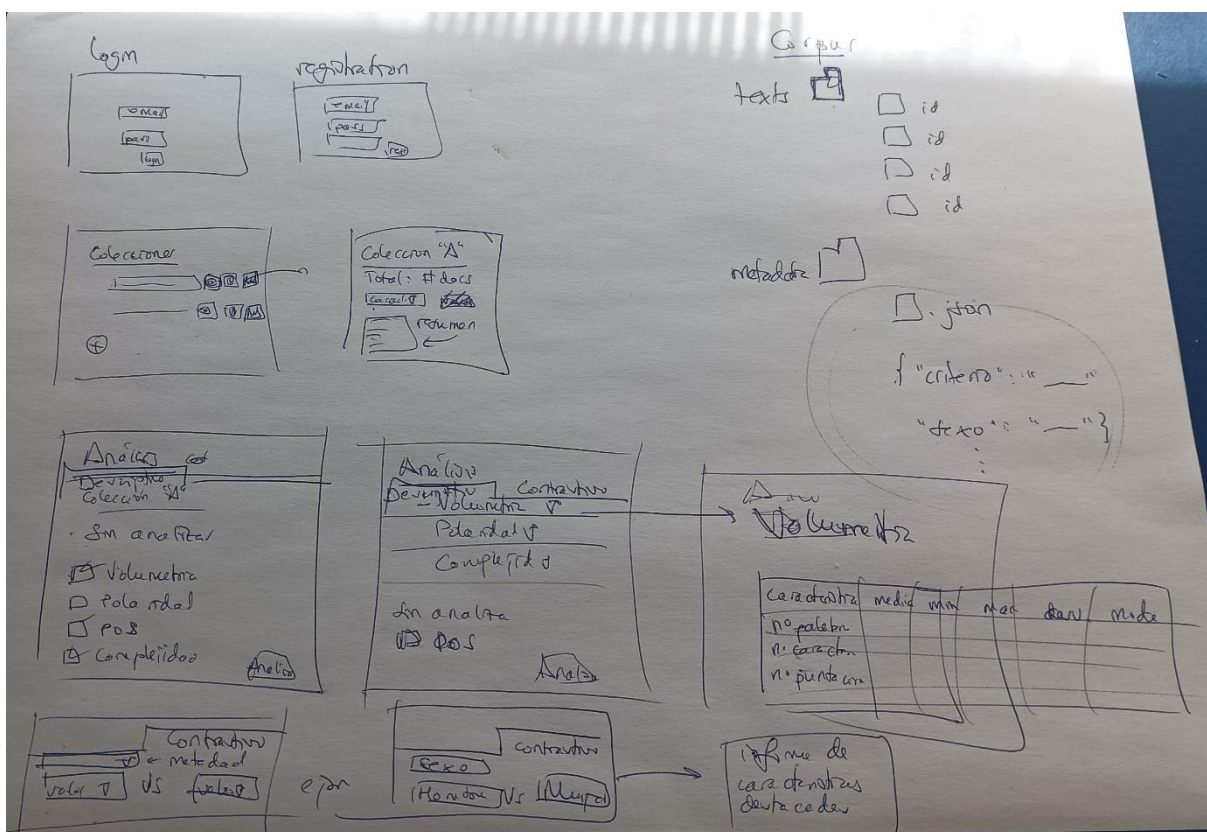 login
email
pass
login
registration
email
pass
Corpus
texts
id
id
id
id
metadata
.json
{ "criterio": "___"
"sexo": "___" }
Colecciones
Coleccion "A"
Total: # docs
resumen
Análisis
Descriptivo
Colección "A"
Sin analizar
Volumetria
Polaridad
POS
Complejidad
Análisis
Contrastivo
Volumetria
Polaridad
Complejidad
Sin analiza
POS
Volumetria
caracteristica media min max desv moda
nº palabr
n. caracter
nº puntuacion
Contrastivo
metadad
valor vs valor
ejm
Contrastivo
sexo
Hombre vs Mujer
informe de
caracteristicas
destacadas